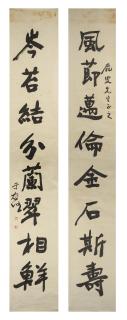 風節邁倫金石斯壽
先生正之
岑苔結分蘭翠相鮮
于右任